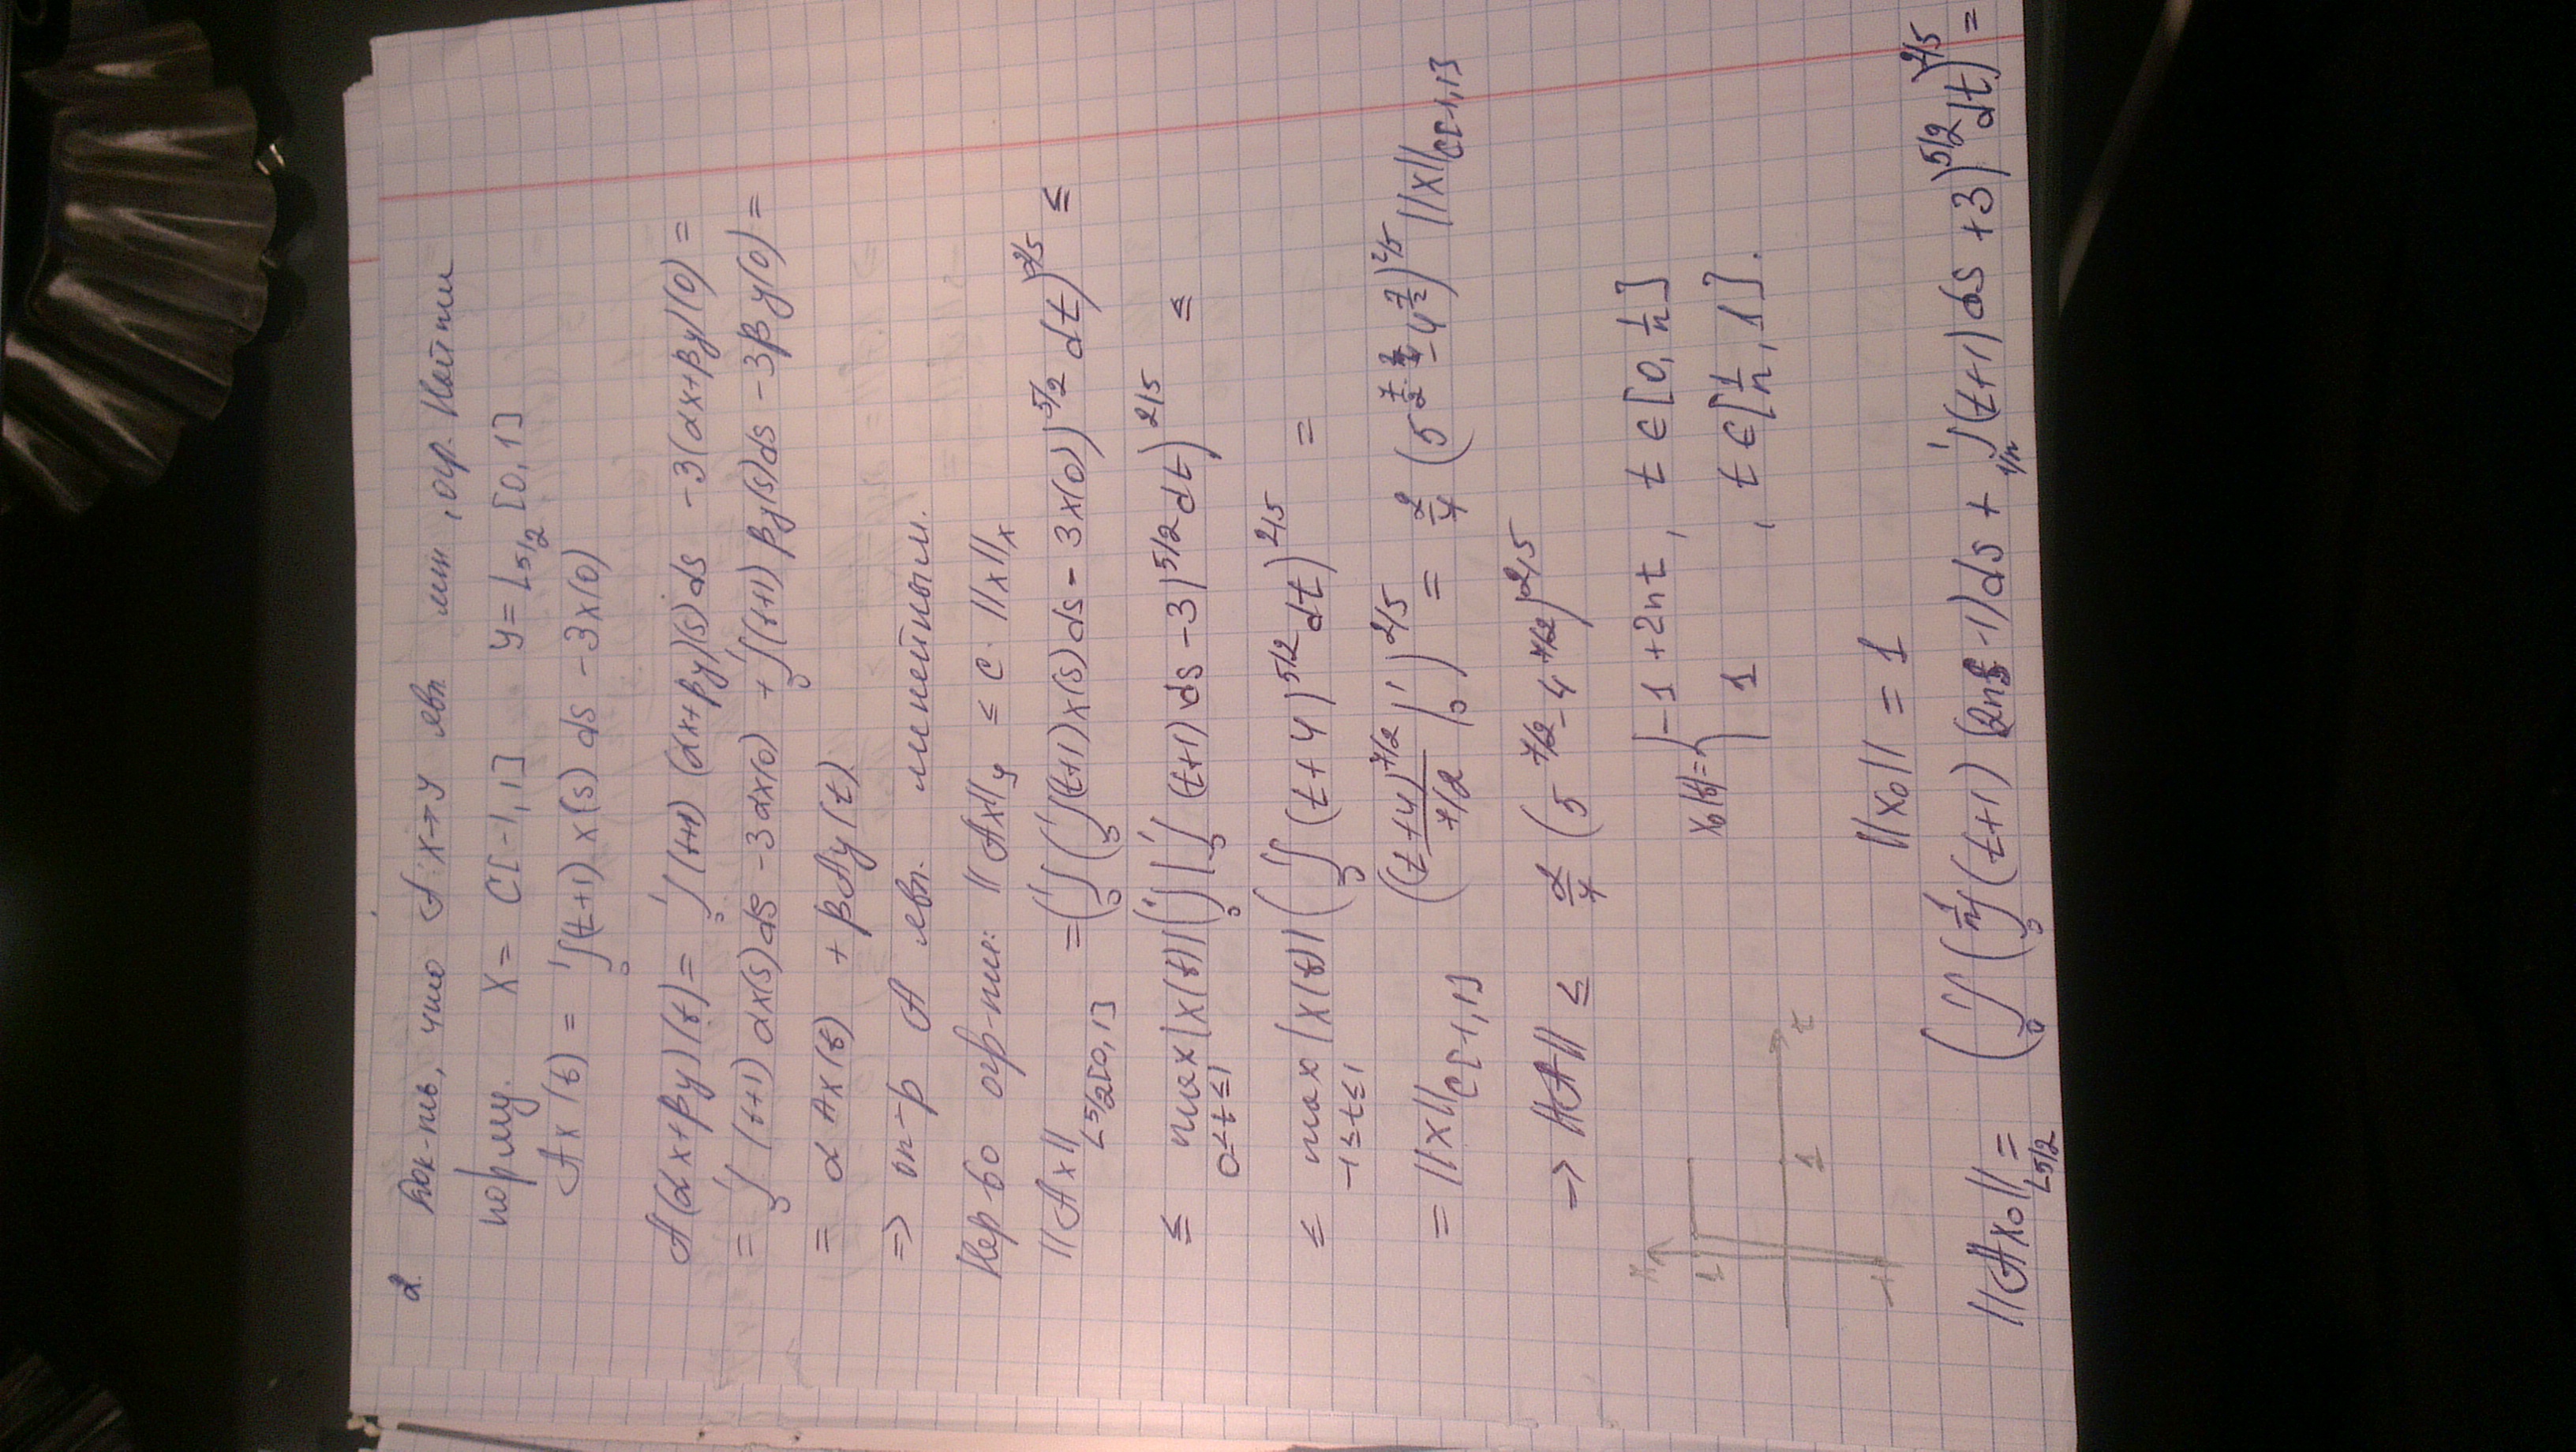 2. Док-ть, что A: x→y явл. лин, огр. Найти
норму. X = C[-1,1] Y = L5/2 [0,1]
Ax(t) = ∫₀¹(t+1) x(s) ds - 3x(0)
A(αx+βy)(t) = ∫₀¹(t+1) (αx+βy)(s) ds - 3(αx+βy)(0) =
= ∫₀¹(t+1) αx(s)ds - 3αx(0) + ∫₀¹(t+1) βy(s)ds - 3βy(0) =
= αAx(t) + βAy(t)
=> оп-р A явл. линейным.
Нер-во огр-ти: ||Ax||y ≤ c·||x||x
||Ax|| L5/2[0,1] = (∫₀¹(∫₀¹(t+1)x(s)ds - 3x(0))^5/2 dt)^2/5 ≤
≤ max 0≤t≤1 |x(t)| (∫₀¹|∫₀¹(t+1)ds - 3|^5/2 dt)^2/5 ≤
≤ max -1≤t≤1 |x(t)| (∫₀¹(t+4)^5/2 dt)^2/5 =
= ||x||C[-1,1] ((t+4)^7/2 / 7/2 |₀¹)^2/5 = 2/7 (5^7/2 - 4^7/2)^2/5 ||x||C[-1,1]
=> ||A|| ≤ 2/7 (5^7/2 - 4^7/2)^2/5
x₀(t) = { -1 + 2nt, t ∈ [0, 1/n]
1 , t ∈ [1/n, 1].
x 1 -1 1 t
||x₀|| = 1
||Ax₀|| L5/2 = (∫₀¹(∫₀^1/n (t+1) (2ns-1)ds + ∫1/n¹(t+1)ds + 3)^5/2 dt)^2/5 =